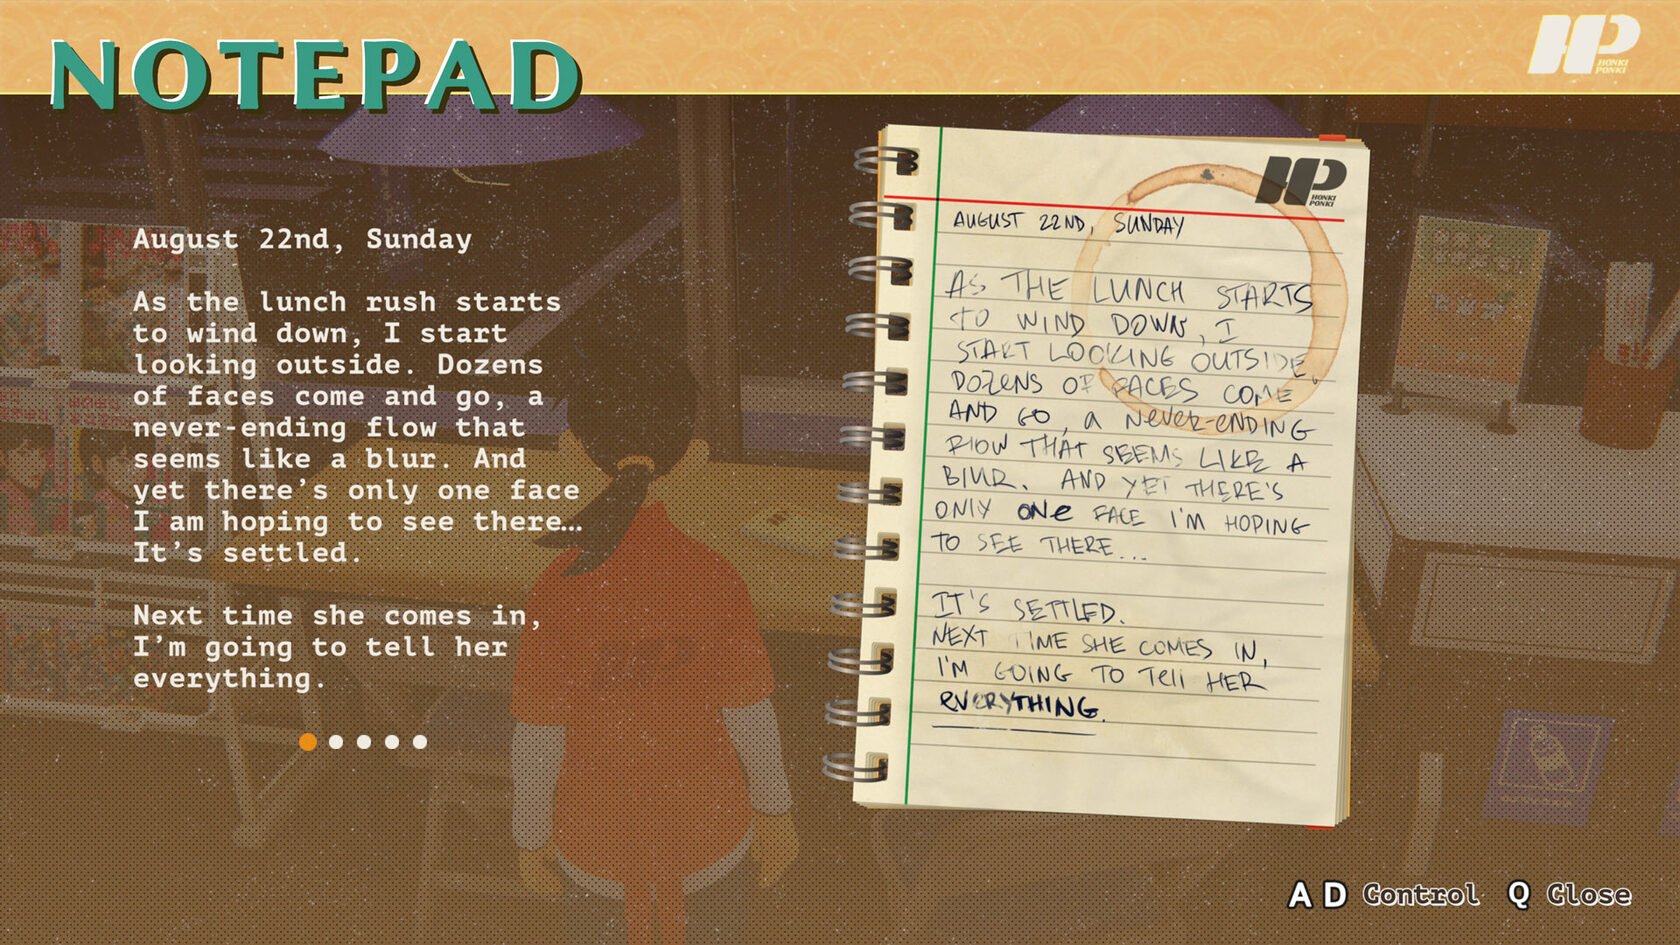 NOTEPAD
HP
HONKI
PONKI
August 22nd, Sunday
As the lunch rush starts
to wind down, I start
looking outside. Dozens
of faces come and go, a
never-ending flow that
seems like a blur. And
yet there's only one face
I am hoping to see there...
It's settled.
Next time she comes in,
I'm going to tell her
everything.
HP
HONKI
PONKI
AUGUST 22ND, SUNDAY
AS THE LUNCH STARTS
TO WIND DOWN, I
START LOOKING OUTSIDE.
DOZENS OF FACES COME
AND GO, A NEVER-ENDING
FLOW THAT SEEMS LIKE A
BLUR. AND YET THERE'S
ONLY ONE FACE I'M HOPING
TO SEE THERE...
IT'S SETTLED.
NEXT TIME SHE COMES IN,
I'M GOING TO TELL HER
EVERYTHING.
A D Control Q Close